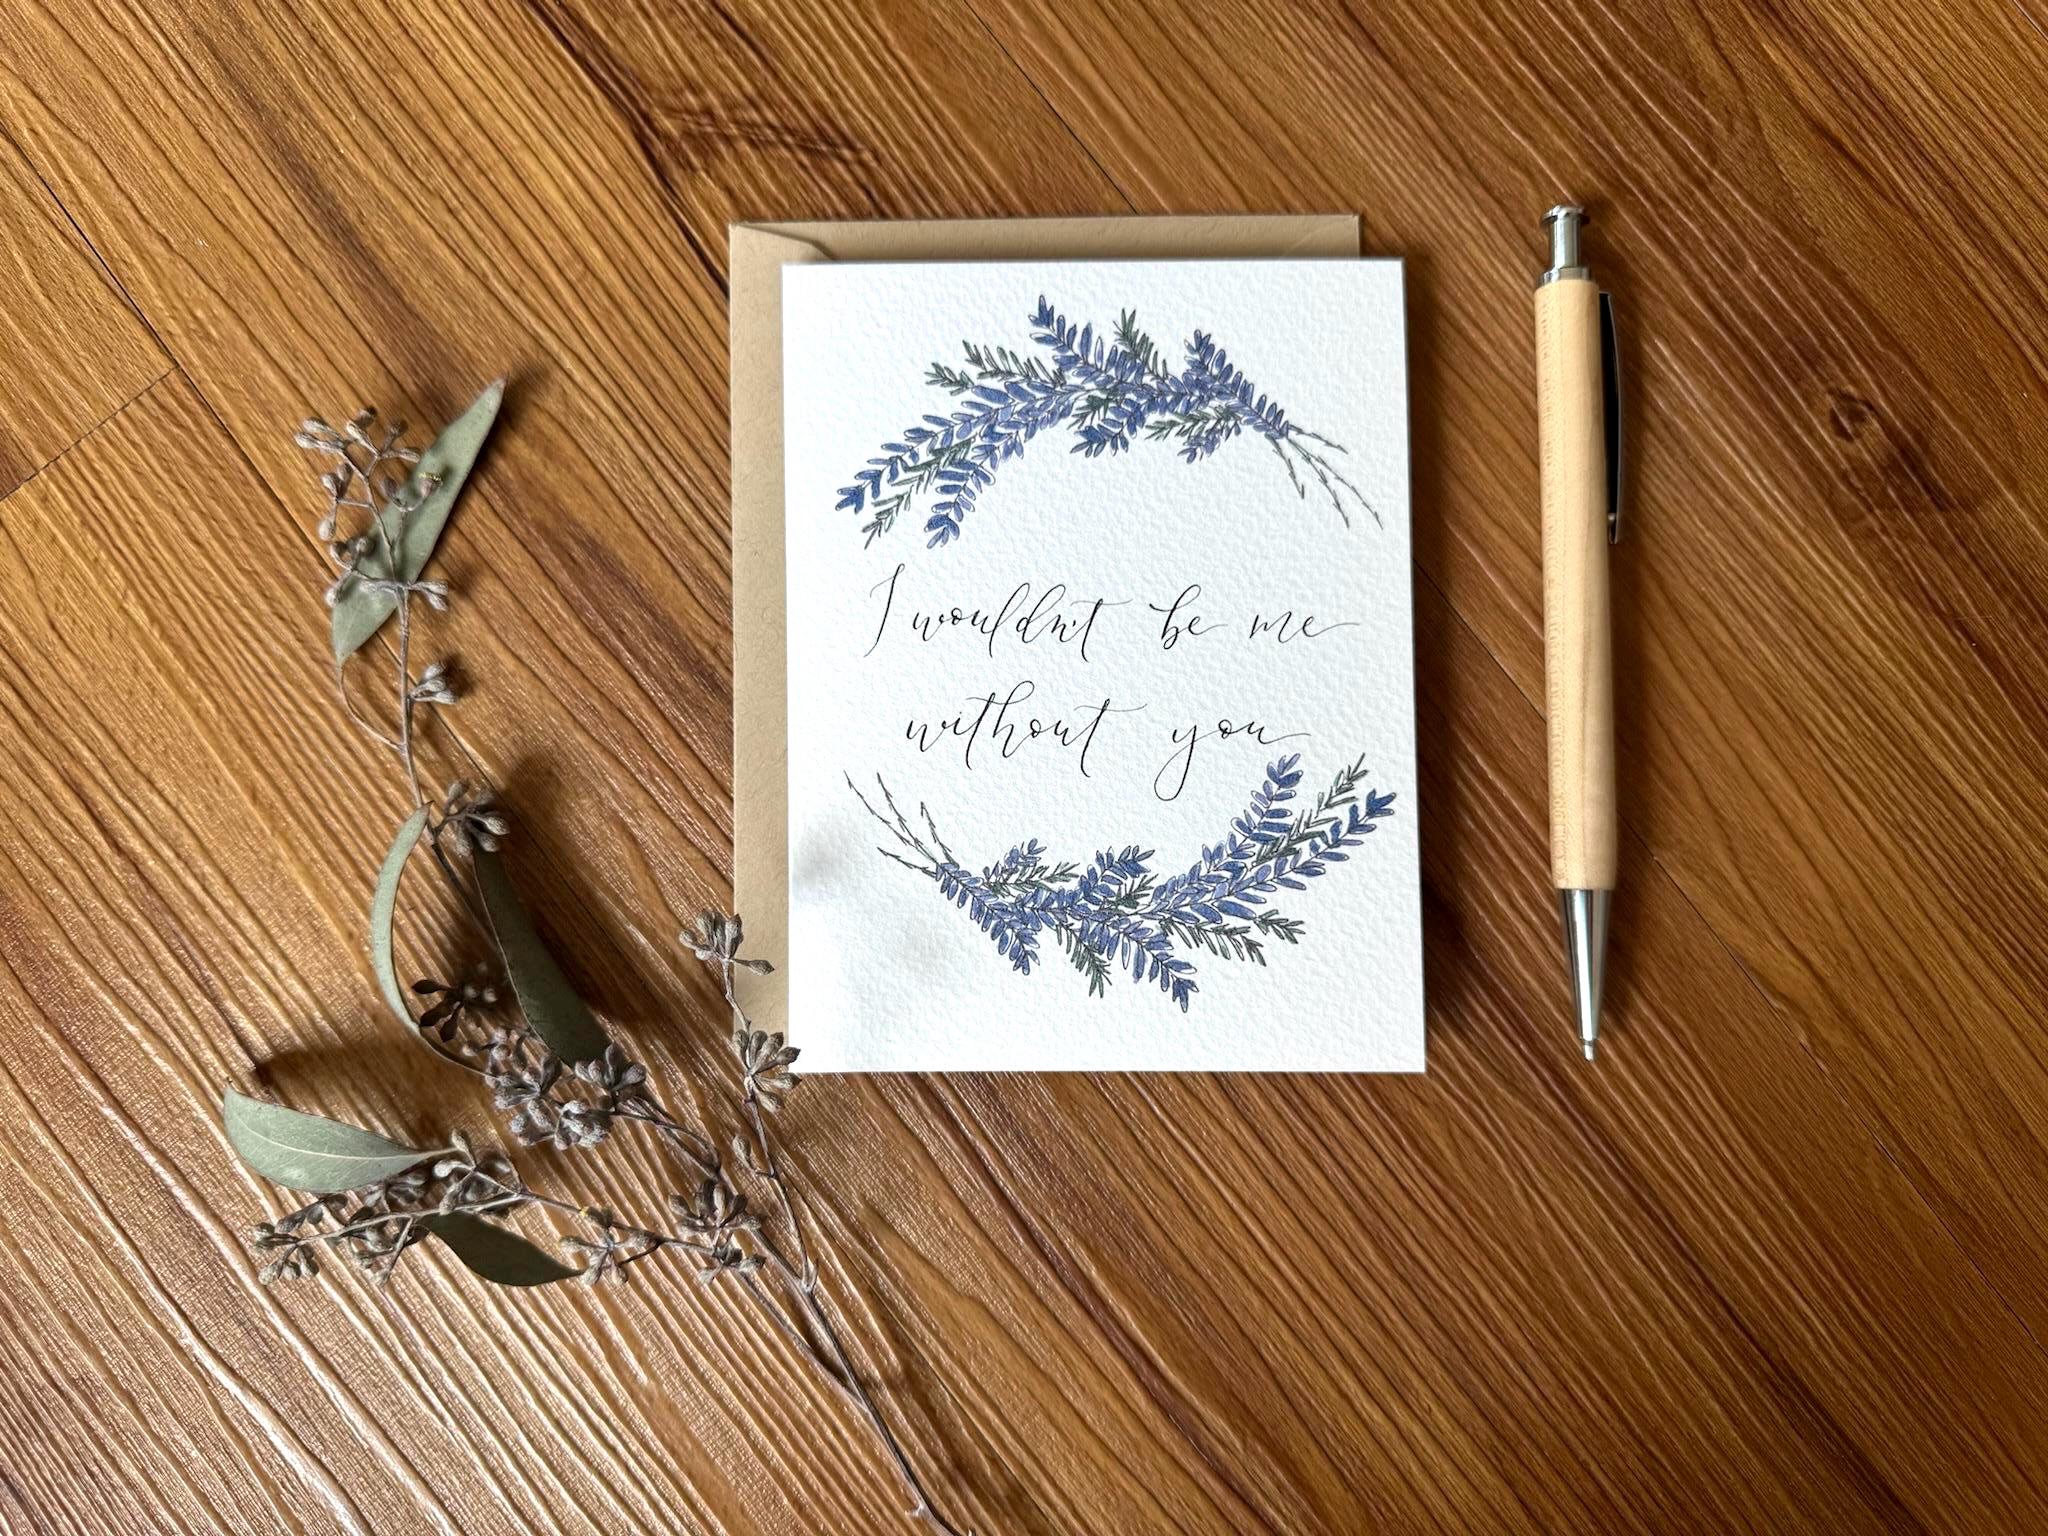 I wouldn't be me
without you